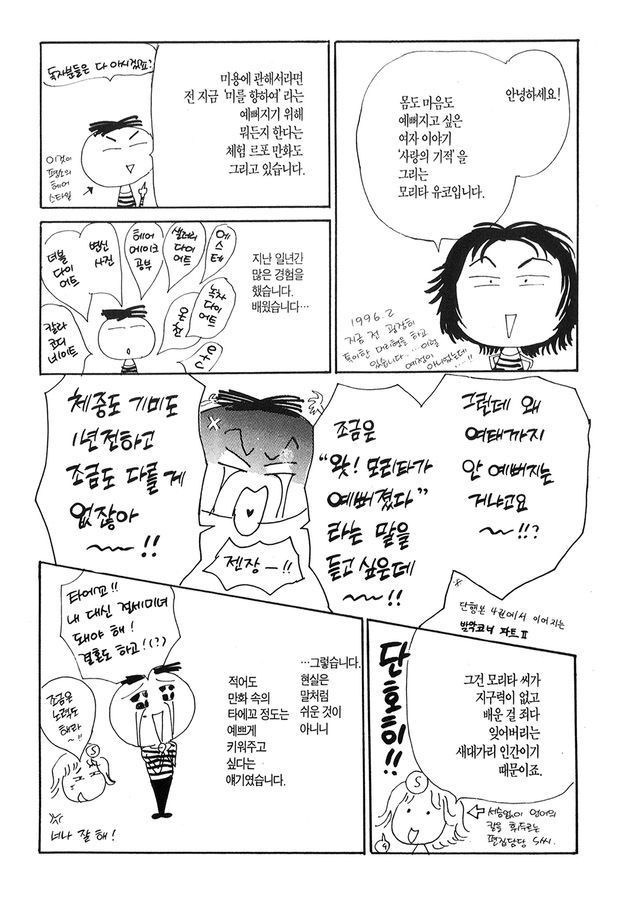 안녕하세요!
몸도 마음도
예뻐지고 싶은
여자 이야기
'사랑의 기적'을
그리는
모리타 유코입니다.
1996.2
지금 전 굉장히
특이한 머리형을 하고
있습니다… 이럴
예정이
아니었는데…!!
미용에 관해서라면
전 지금 '미를 향하여'라는
예뻐지기 위해
뭐든지 한다는
체험 르포 만화도
그리고 있습니다.
독자분들은 다 아시겠죠?
이것이
평소의
헤어
스타일
지난 일년간
많은 경험을
했습니다.
배웠습니다…
에스테
샐러리
다이
어트
헤어
메이크
공부
변신
사진
더블
다이
어트
칼라
코디
네이트
녹차다이
어트
온천
그런데 왜
여태까지
안 예뻐지는
거냐고요
~!!?
조금은
"앗! 모리타가
예뻐졌다"
라는 말을
듣고 싶은데
~!!
체중도 기미도
1년전하고
조금도 다를 게
없잖아
~!!
젠장—!!
※
단행본 4권에서 이어지는
발악코너 파트 Ⅱ
단호히!!
그건 모리타 씨가
지구력이 없고
배운 걸 죄다
잊어버리는
새대가리 인간이기
때문이죠.
S
편집담당 S씨.
…그렇습니다.
현실은
말처럼
쉬운 것이
아니니
적어도
만화 속의
타에꼬 정도는
예쁘게
키워주고
싶다는
얘기였습니다.
타에꼬!!
내 대신 절세미녀
돼야 해!
결혼도 하고!(?)
조금은
노력도
해라
~!!
S
너나 잘 해!